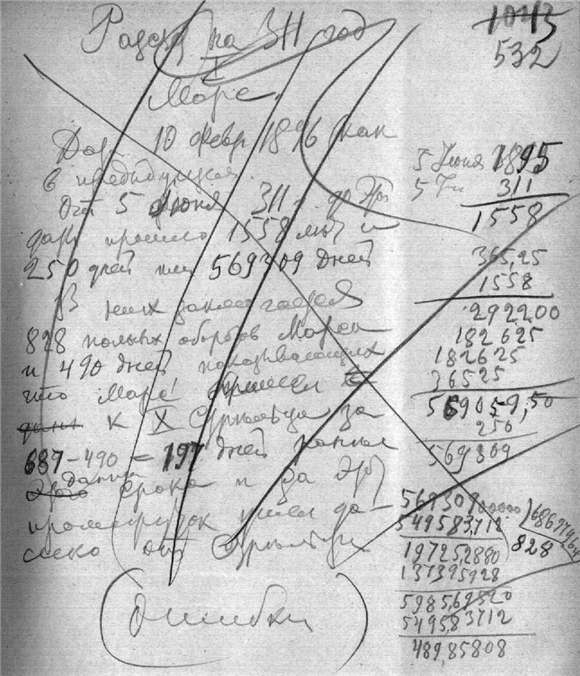 1043
532
Разсчет на 311 год
I
Марс.
Дано 10 февр 1896 как
в предыдущем.
От 5 Июня 311 г. до Эры
даты прошло 1558 лет и
250 дней или 569309 дней
В них заключается
828 полных оборотов Марса
и 490 дней показывающих
что Марс пришел
к X Стрельца за
687-490 = 197 дней раньше
срока и за эту
промежуток ушел да-
леко от Стрельца
(Ошибки)
5 Июня 1895
311
1558
365,25
1558
292200
182625
182625
36525
569059,50
250
569309
569309,00000
549583,712
828
197252880
137395928
598569520
549583712
489,85808